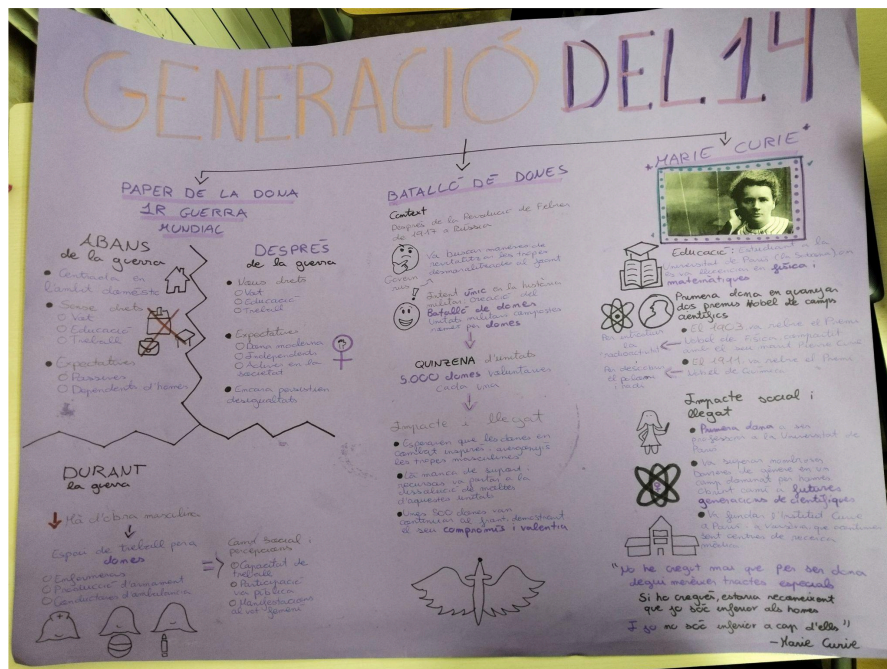 GENERACIÓ DEL 14
PAPER DE LA DONA
1R GUERRA
MUNDIAL
ABANS
de la guerra
• Centrada en
l'àmbit domèstic
• Sense drets
O Vot
O Educació
O Treball
• Expectatives
O Passives
O Dependents d'homes
DESPRÉS
de la guerra
• Nous drets
O Vot
O Educació
O Treball
• Expectatives
O Dona moderna
O Independents
O Actives en la
societat
• Encara persistien
desigualtats
DURANT
la guerra
Mà d'obra masculina
Espai de treball per a
dones
O Enfermeres
O Producció d'armament
O Conductores d'ambulància
=>
Canvi social i
percepcions
O Capacitat de
treball
O Participació
via pública
O Manifestacions
BATALLÓ DE DONES
Context
Després de la Revolució de Febrer
de 1917 a Rússia
Govern
rus
Va buscar maneres de
revitalitzar les tropes
desmoralitzades al front
Talent únic en la història
militar: creació del
Batalló de dones
Unitats militars composades
només per dones
QUINZENA d'unitats
5.000 dones voluntàries
cada una
Impacte i llegat
• Esperaven que les dones en
combat inspirés i avergonyís
les tropes masculines
• La manca de suport i
recursos va portar a la
dissolució de moltes
d'aquestes unitats
• Unes 500 dones van
continuar al front, demostrant
el seu compromís i valentia
*MARIE CURIE*
Educació: Estudiant a la
Universitat de París (La Sorbona), on
es va llicenciar en física i
matemàtiques
Primera dona en guanyar
dos premis Nobel de camps
científics
• El 1903 va rebre el Premi
Nobel de Física compartit
amb el seu marit Pierre Curie
Per investigar
la
radioactivitat
• El 1911 va rebre el Premi
Nobel de Química
Per descobrir
el poloni
i radi
Impacte social i
llegat
• Primera dona a ser
professora a la Universitat de
París
• Va superar nombroses
barreres de gènere en un
camp dominat per homes
obrint camí a futures
generacions de científiques
• Va fundar l'Institut Curie
a París i a Varsòvia, que continuen
sent centres de recerca
mèdica
"No he cregut mai que per ser dona
degui merèixer tractes especials
Si ho cregués, estaria reconeixent
que jo sóc inferior als homes
I jo no sóc inferior a cap d'ells"
-Marie Curie